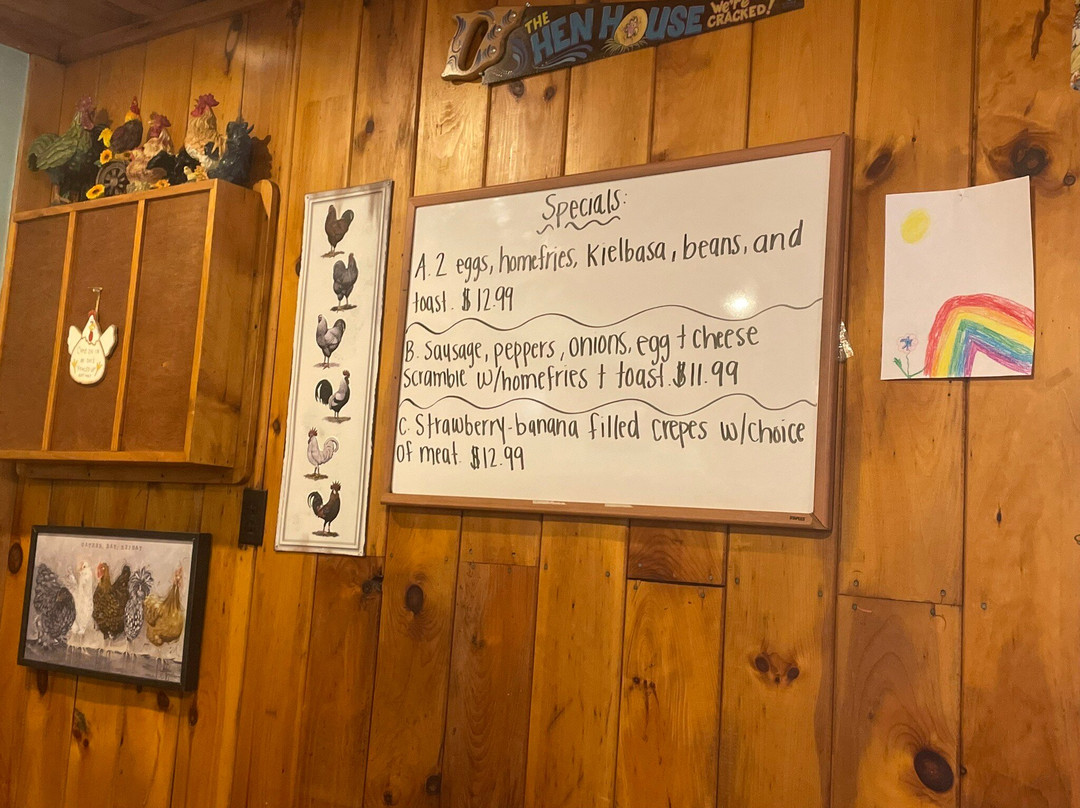 THE HEN HOUSE WE'RE CRACKED!
Specials:
A. 2 eggs, homefries, Kielbasa, beans, and
toast. $12.99
B. Sausage, peppers, onions, egg + cheese
Scramble w/homefries + toast. $11.99
C. Strawberry-banana filled crepes w/choice
of meat. $12.99